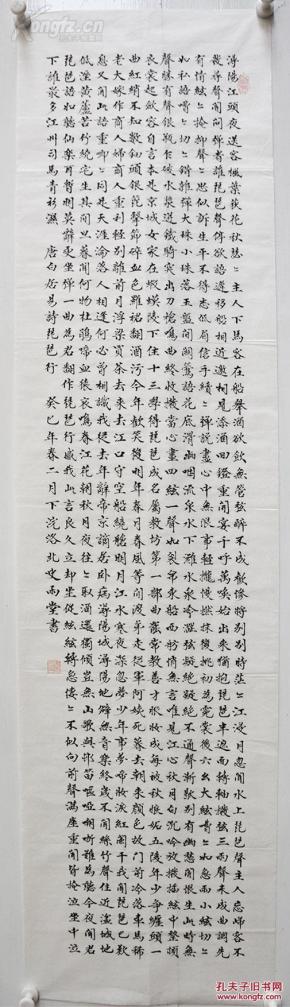 潯陽江頭夜送客楓葉荻花秋瑟〻主人下馬客在船舉酒欲飲無管絃醉不成歡慘將別別時茫〻江浸月忽聞水上琵琶聲主人忘歸客不
發尋聲闇問彈者誰琵琶聲停欲語遲移船相近邀相見添酒回燈重開宴千呼萬喚始出來猶抱琵琶半遮面轉軸撥絃三兩聲未成曲調先
有情絃〻掩抑聲〻思似訴生平不得志低眉信手續〻彈說盡心中無限事輕攏慢撚抹復挑初為霓裳後六幺大絃嘈〻如急雨小絃切〻
如私語嘈〻切〻錯雜彈大珠小珠落玉盤間關鶯語花底滑幽咽流泉水下灘水泉冷澀絃凝絕凝絕不通聲漸歇別有幽愁闇恨生此時無
聲勝有聲銀瓶乍破水漿迸鐵騎突出刀槍鳴曲終收撥當心畫四絃一聲如裂帛東船西舫悄無言唯見江心秋月白沉吟放撥插絃中整頓
衣裳起斂容自言本是京城女家在蝦蟆陵下住十三學得琵琶成名屬教坊第一部曲罷常教善才服妝成每被秋娘妒五陵年少爭纏頭一
曲紅綃不知數鈿頭銀篦擊節碎血色羅裙翻酒汙今年歡笑復明年秋月春風等閒度弟走從軍阿姨死暮去朝來顏色故門前冷落車馬稀
老大嫁作商人婦商人重利輕別離前月浮梁買茶去去來江口守空船繞船明月江水寒夜深忽夢少年事夢啼妝淚紅闌干我聞琵琶已歎
息又聞此語重唧〻同是天涯淪落人相逢何必曾相識我從去年辭帝京謫居臥病潯陽城潯陽地僻無音樂終歲不聞絲竹聲住近湓城地
低濕黃蘆苦竹繞宅生其間旦暮聞何物杜鵑啼血猿哀鳴春江花朝秋月夜往〻取酒還獨傾豈無山歌與邨笛嘔啞嘲哳難為聽今夜聞君
琵琶語如聽仙樂耳暫明莫辭更坐彈一曲為君翻作琵琶行感我此言良久立却坐促絃絃轉急悽〻不似向前聲滿座重聞皆掩泣坐中泣
下誰最多江州司馬青衫濕 唐白居易詩琵琶行 癸巳年春二月下浣洛北史雨堂書
孔夫子旧书网